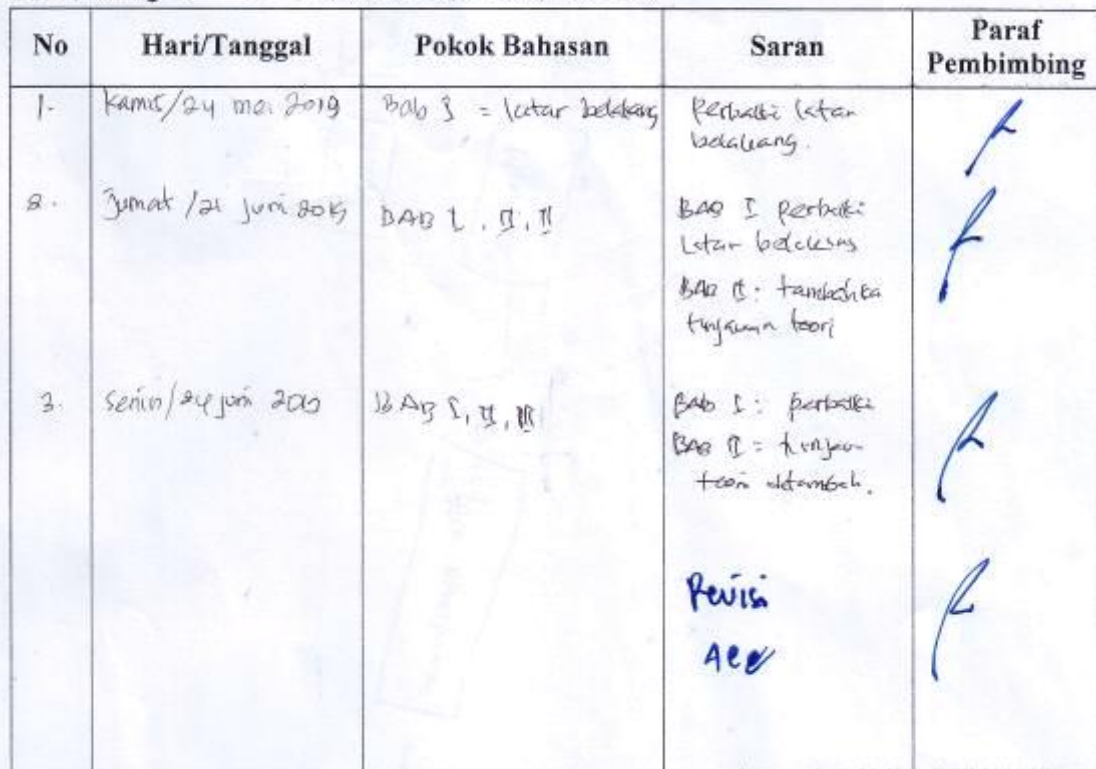 No Hari/Tanggal Pokok Bahasan Saran Paraf Pembimbing
1. Kamis/24 mei 2019 Bab I = latar belakang Perbaiki latar
belakang.
2. Jumat /21 juni 2019 BAB I, II, II BAB I perbaiki
latar belakang
BAB II: tambahka
tinjauan teori
3. Senin/24 juni 2019 BAB I, II, III Bab I: perbaiki
BAB II = tinjau
teori ditambah.
Revisi
Acc